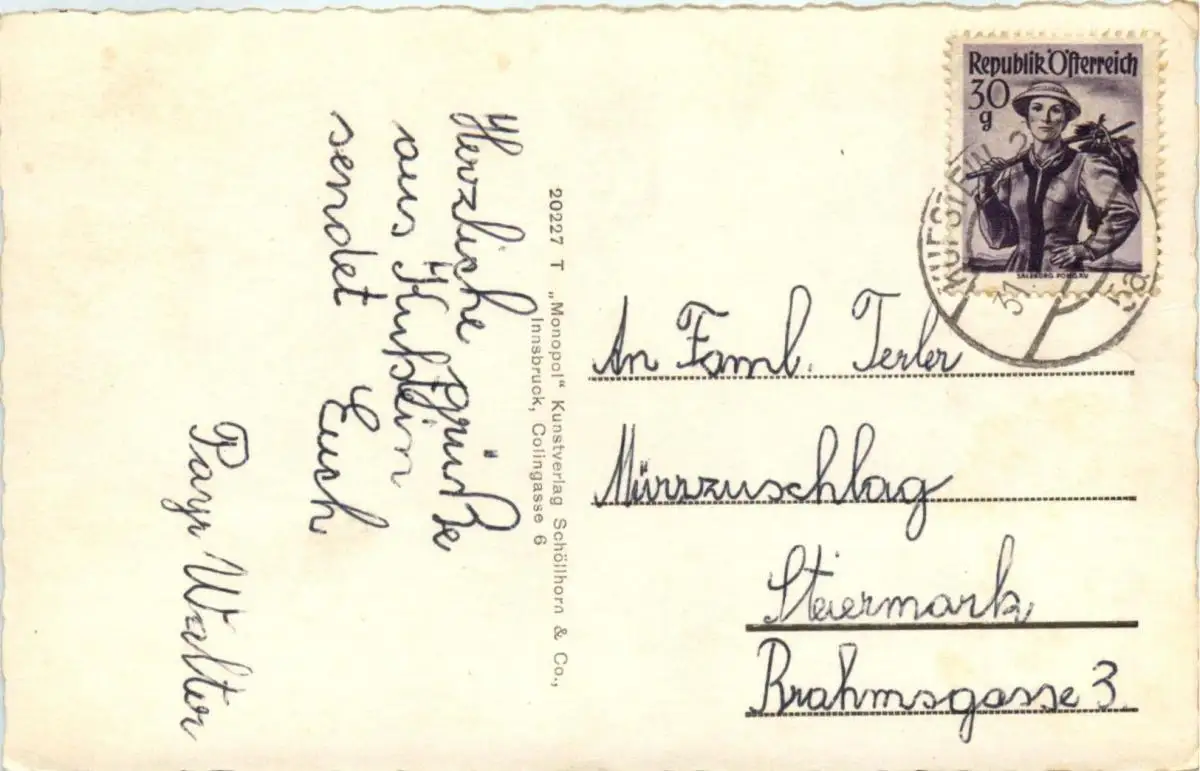 Herzliche Grüße
aus Kufstein
sendet Euch
Payr Walter
20227 T „Monopol“ Kunstverlag Schöllhorn & Co.,
Innsbruck, Colingasse 6
Republik Österreich
30
g
SALZBURG PONGAU
KUFSTEIN 2
31.
An Faml. Terler
Mürzzuschlag
Steiermark
Brahmsgasse 3.